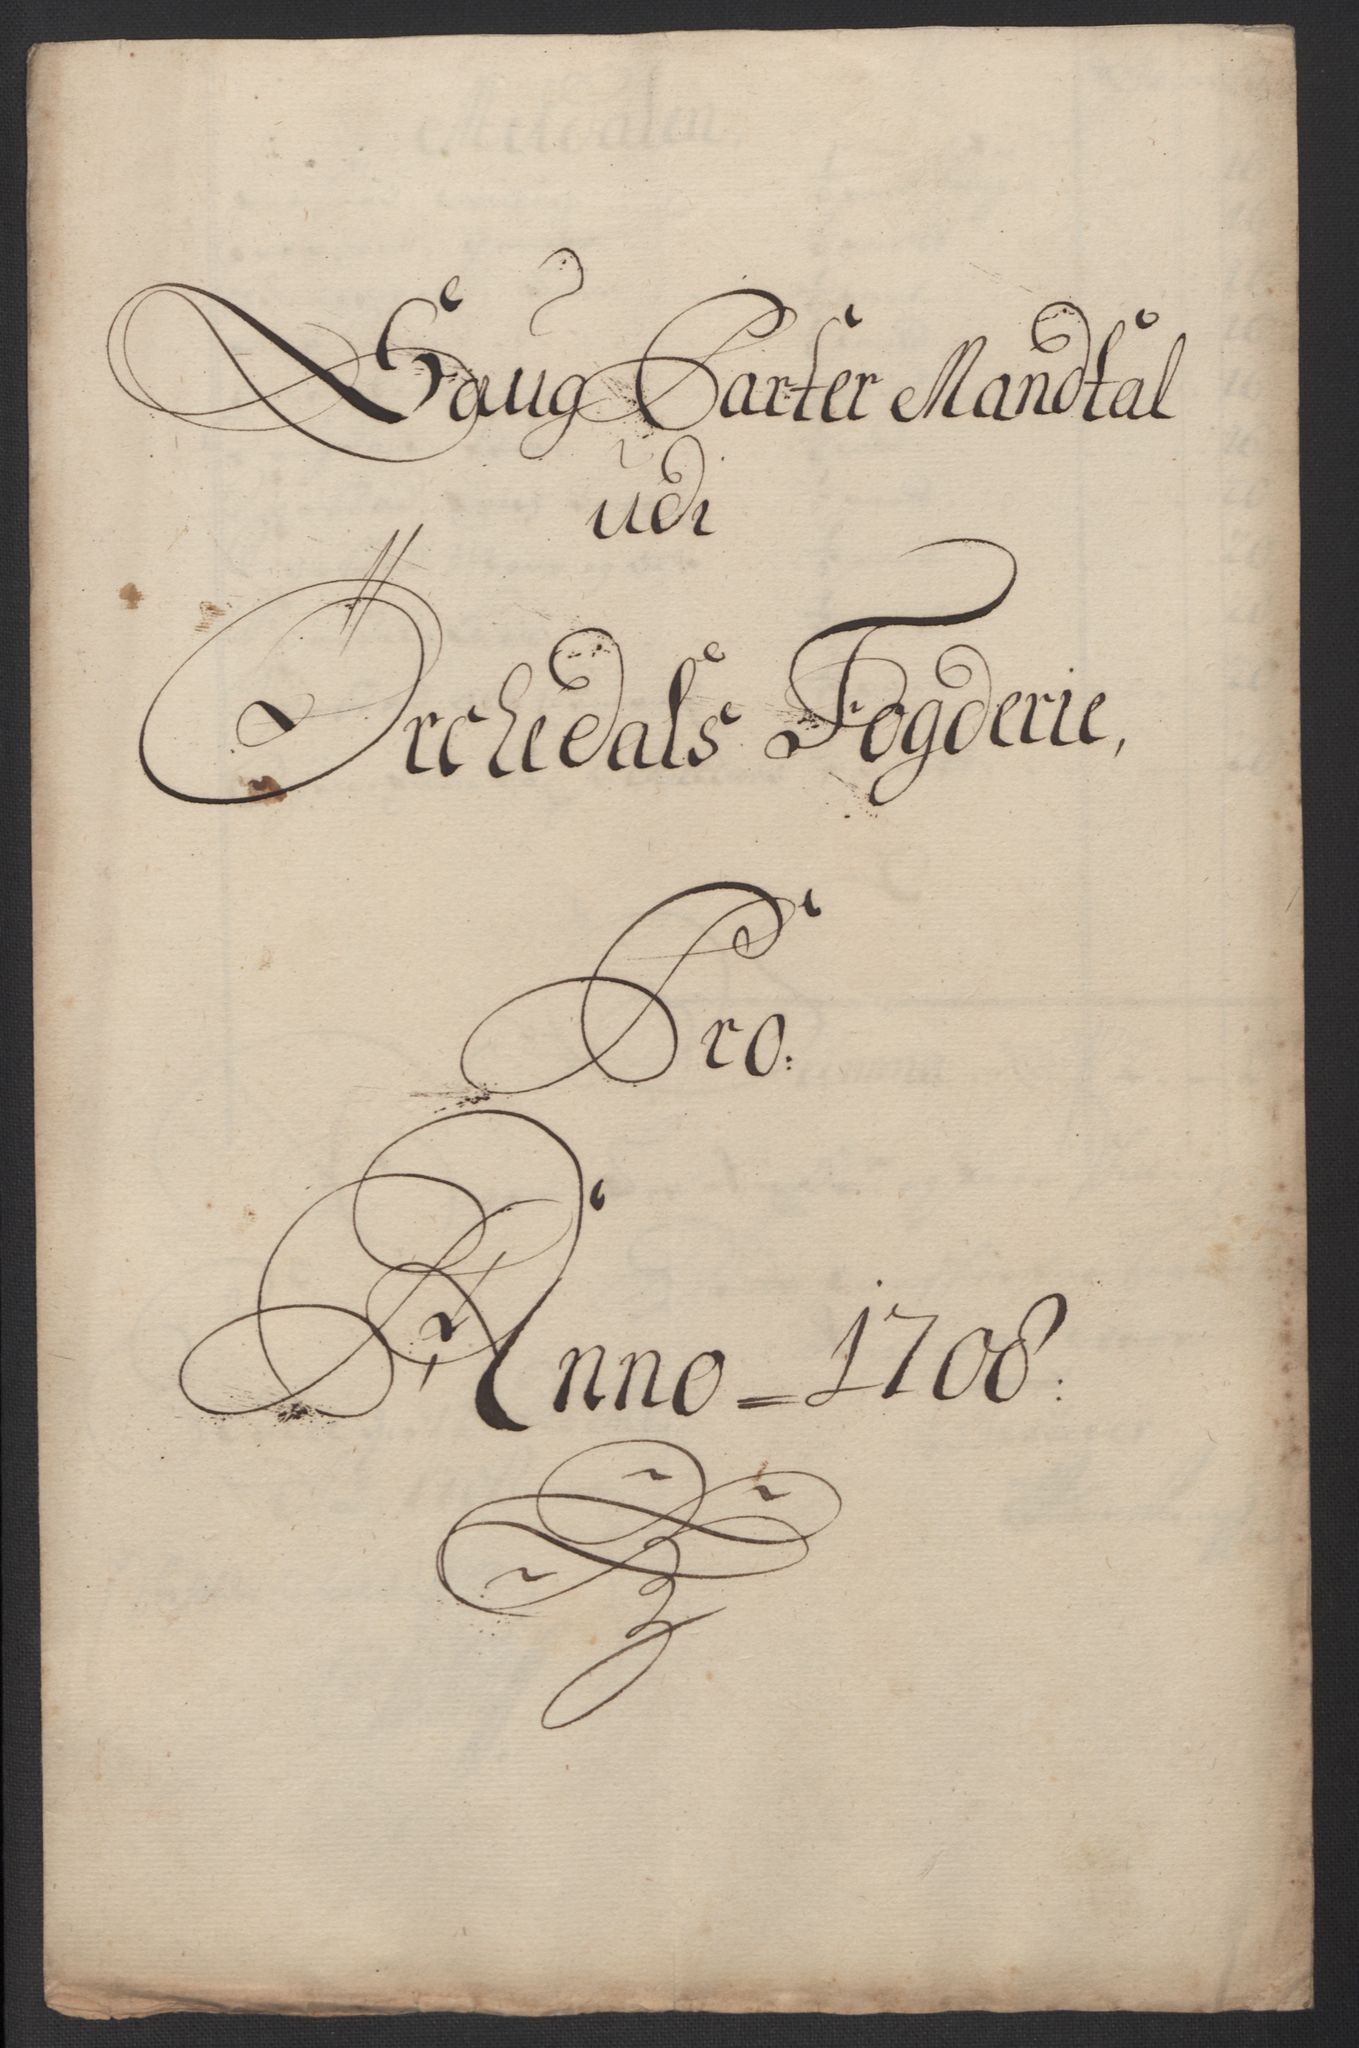 Saug Parter Mandtal
udi
Orchedals Fogderie,
Pro:
Anno = 1708: